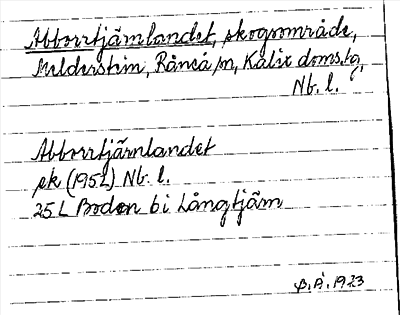 Abborrtjärnlandet, skogsområde,
Melderstein, Råneå sn, Kalix doms.lag,
Nb. l.
Abborrtjärnlandet
sk (1952) Nb. l.
25 L Boden 6 i Långtjärn
1923